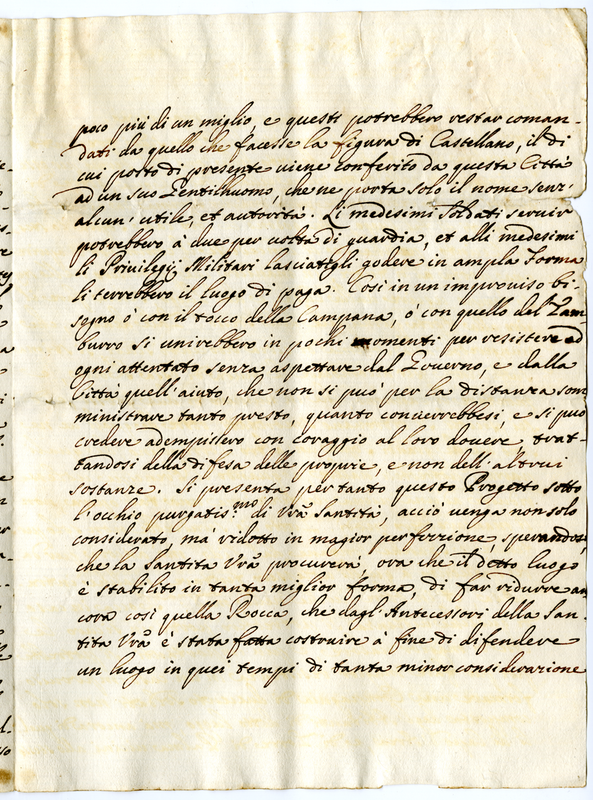 poco più di un miglio, e questi potrebbero restar coman-
dati da quello che facesse la figura di Castellano, il di
cui posto di presente viene conferito da questa Città
ad un suo Gentiluomo, che ne porta solo il nome senz'
alcun' utile, et autorità. Li medesimi Soldati servir
potrebbero à due per volta di guardia, et alli medesimi
li Privilegij Militari lasciatigli godere in ampla Forma
li terrebbero il luogo di paga. Così in un improviso bi-
segno ò con il tocco della Campana, ò con quello del Tam-
burro si unirebbero in pochi momenti per resistere ad
ogni attentato senza aspettare dal Governo, e dalla
Città quell'aiuto, che non si può per la distanza som
ministrare tanto presto, quanto converrebbesi, e si può
credere adempissero con coraggio al loro dovere trat-
tandosi della difesa delle proprie, e non dell'altrui
sostanze. Si presenta per tanto questo Progetto sotto
l'occhio purgatis.mo di Vrã Santità, acciò venga non solo
considerato, mà ridotto in magior perferzione, sperandosi
che la Santità Vrã procurerà, ora che il detto luogo
è stabilito in tanta miglior forma, di far ridurre an
cora così quella Rocca, che dagl'Antecessori della San-
tità Vrã è stata fatta costruire à fine di difendere
un luogo in quei tempi di tanta minor considerazione